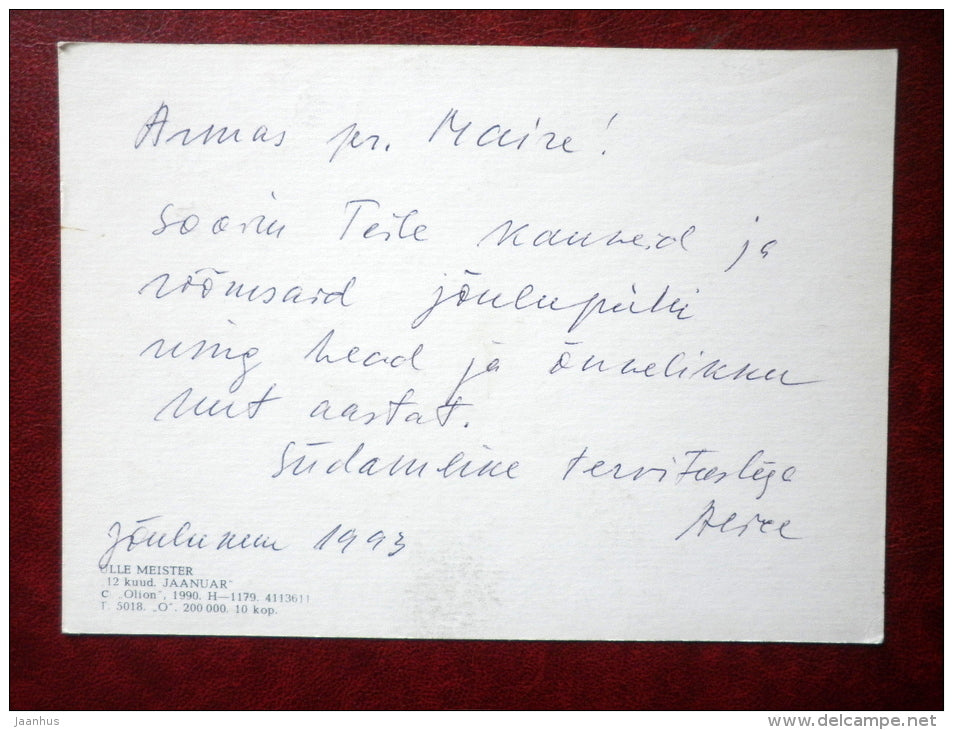 Armas pr. Maire!
Soovin Teile kauneid ja
rõõmsaid jõulupühi
ning head ja õnnelikku
uut aastat.
Südamlike tervitustega
Jõulukuu 1993
ÜLLE MEISTER
„12 kuud. JAANUAR"
C „Olion", 1990. H—1179. 4113611
T. 5018. „O". 200 000. 10 kop.
jaanhus
www.delcampe.net